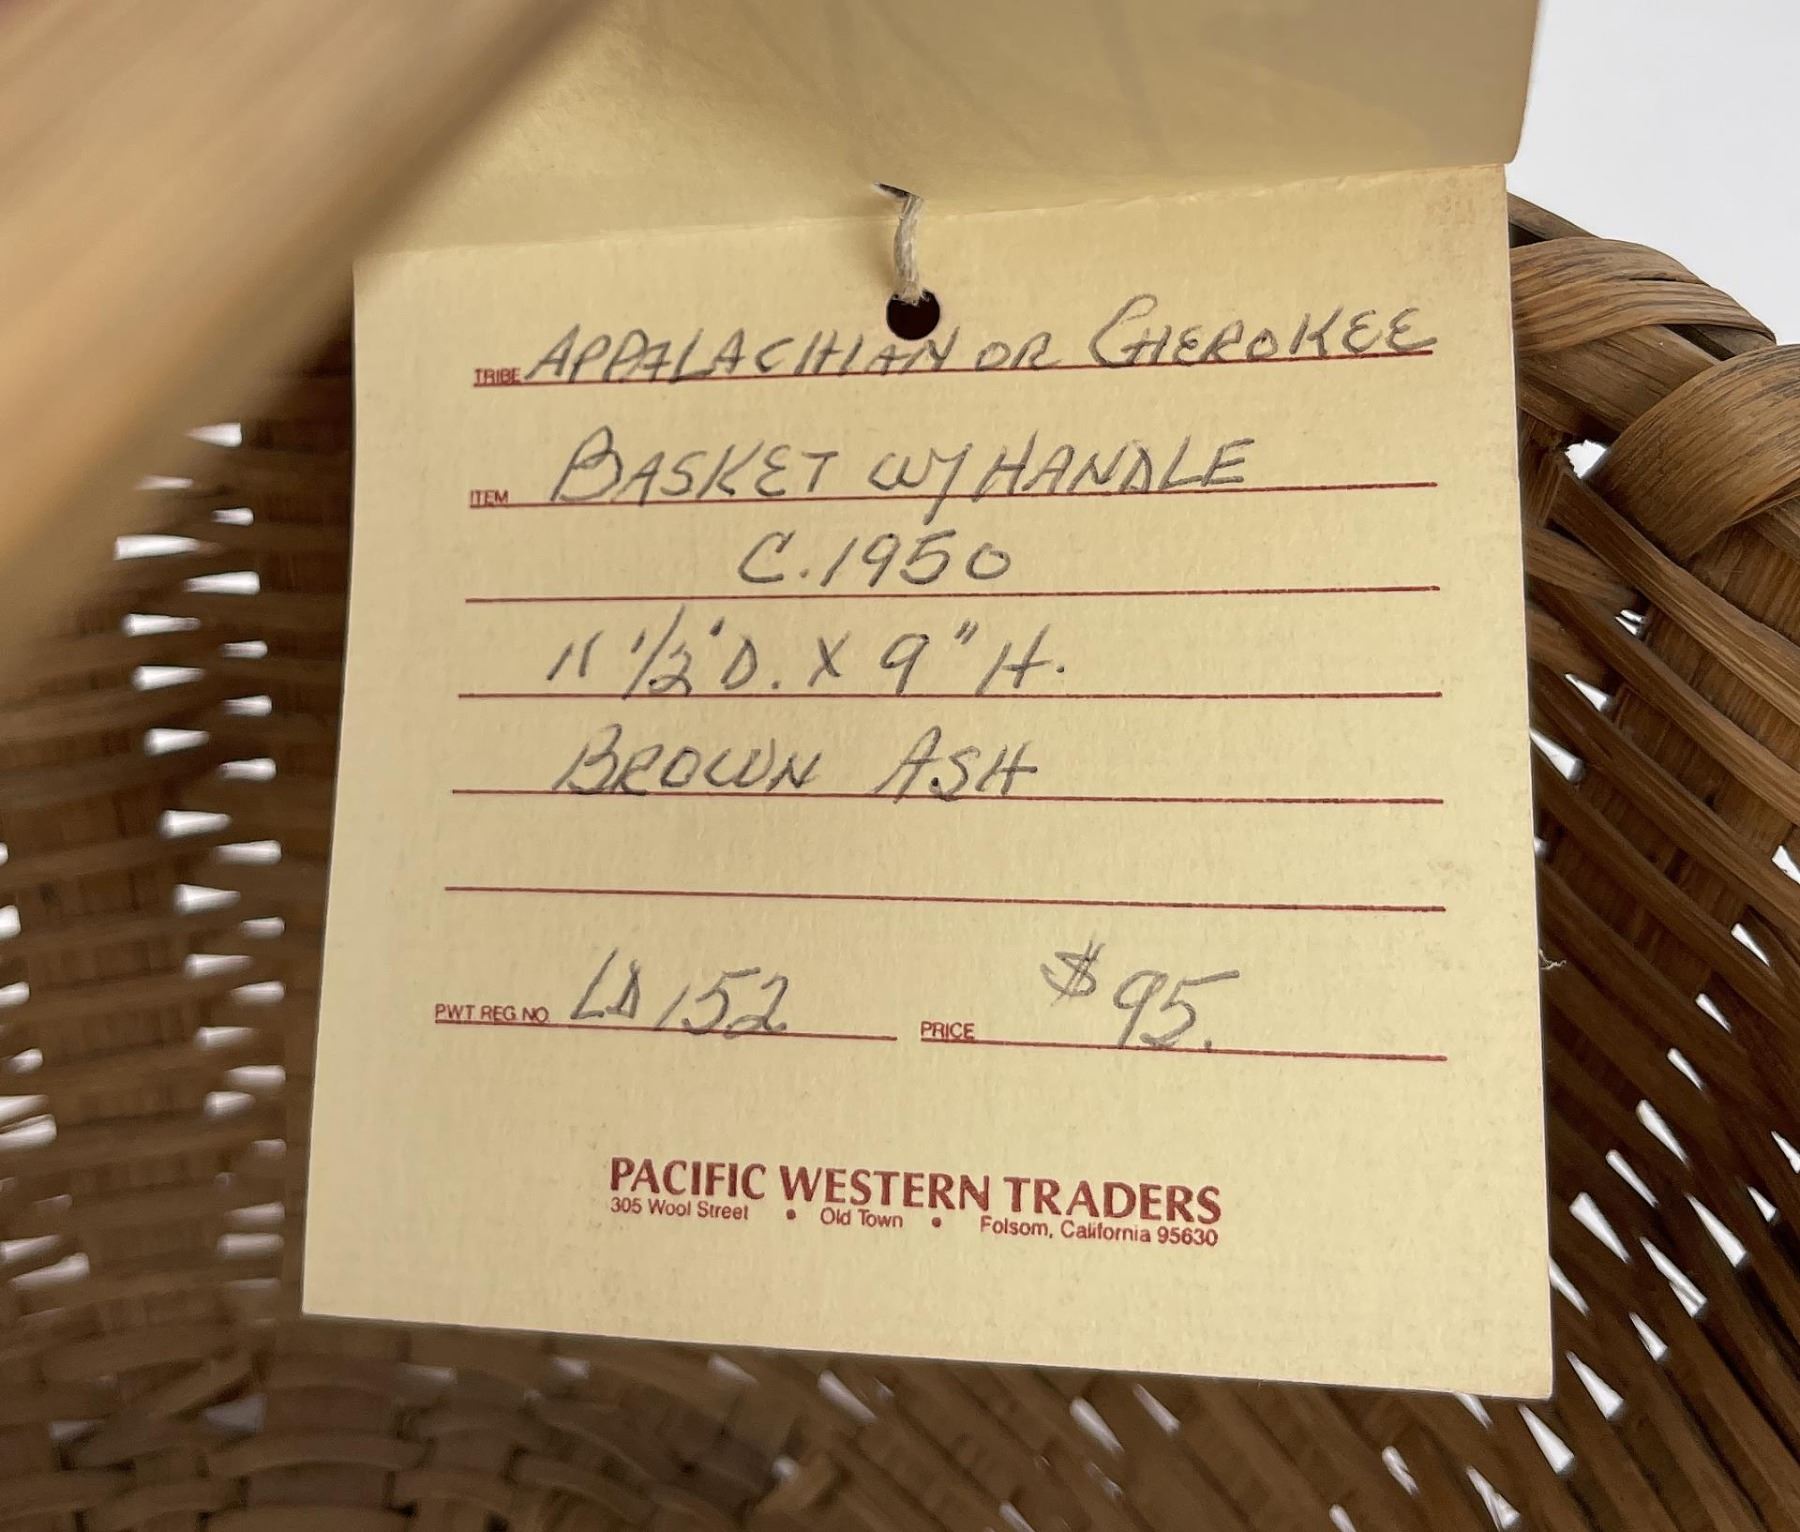 TRIBE APPALACHIAN OR CHEROKEE
ITEM BASKET W/ HANDLE
C. 1950
11 1/2" D. X 9" H.
BROWN ASH
PWT REG. NO. LD 152 PRICE $95.
PACIFIC WESTERN TRADERS
305 Wool Street • Old Town • Folsom, California 95630